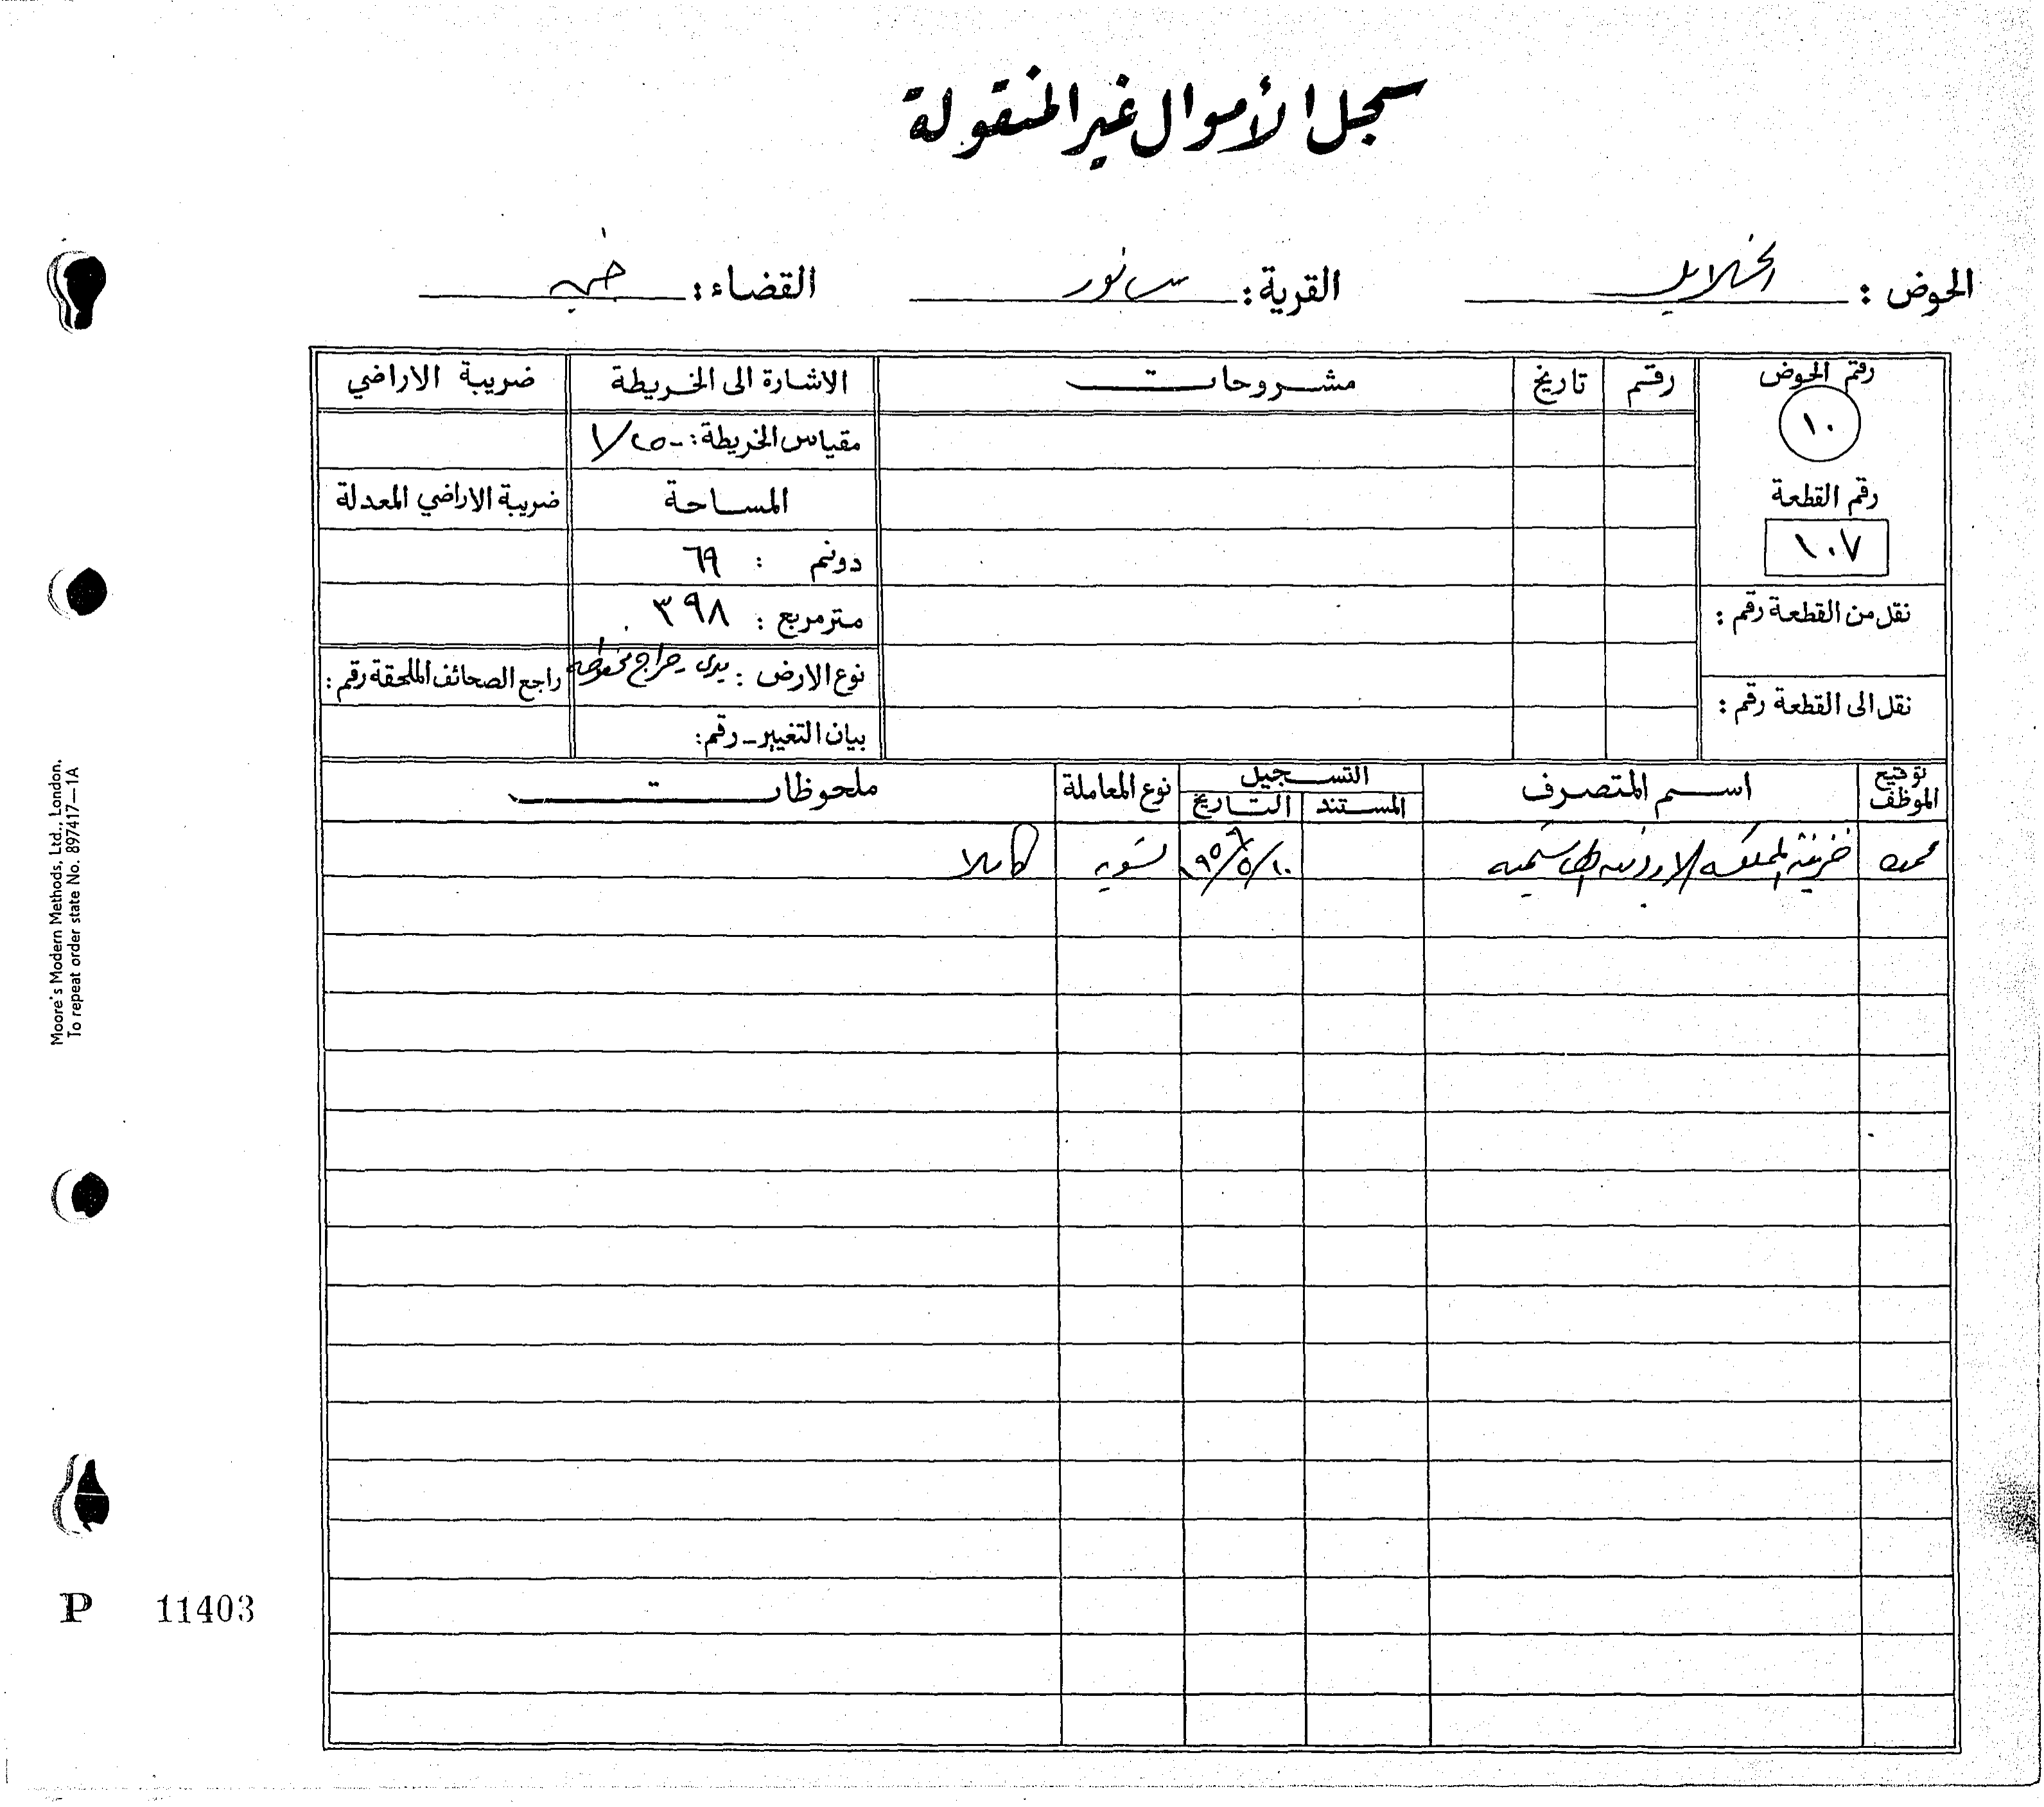 سجل الأموال غير المنقولة
الحوض : الخلايل القرية : سانور القضاء : جنين
رقم الحوض رقم تاريخ مشروحات الاشارة الى الخريطة ضريبة الاراضي
١٠
مقياس الخريطة :
رقم القطعة المساحة ضريبة الاراضي المعدلة
١٠٧
دونم : ٦٩
نقل من القطعة رقم : متر مربع : ٣٩٨
نوع الارض : ميري حراج محفوظه راجع الصحائف الملحقة رقم :
نقل الى القطعة رقم :
بيان التغيير ـ رقم :
توقيع الموظف اسم المتصرف التسجيل نوع المعاملة ملحوظات
المستند التاريخ
خزينة المملكه الاردنيه الهاشميه تسويه كاملا
Moore's Modern Methods, Ltd., London.
To repeat order state No. 897417—1A
P 11403